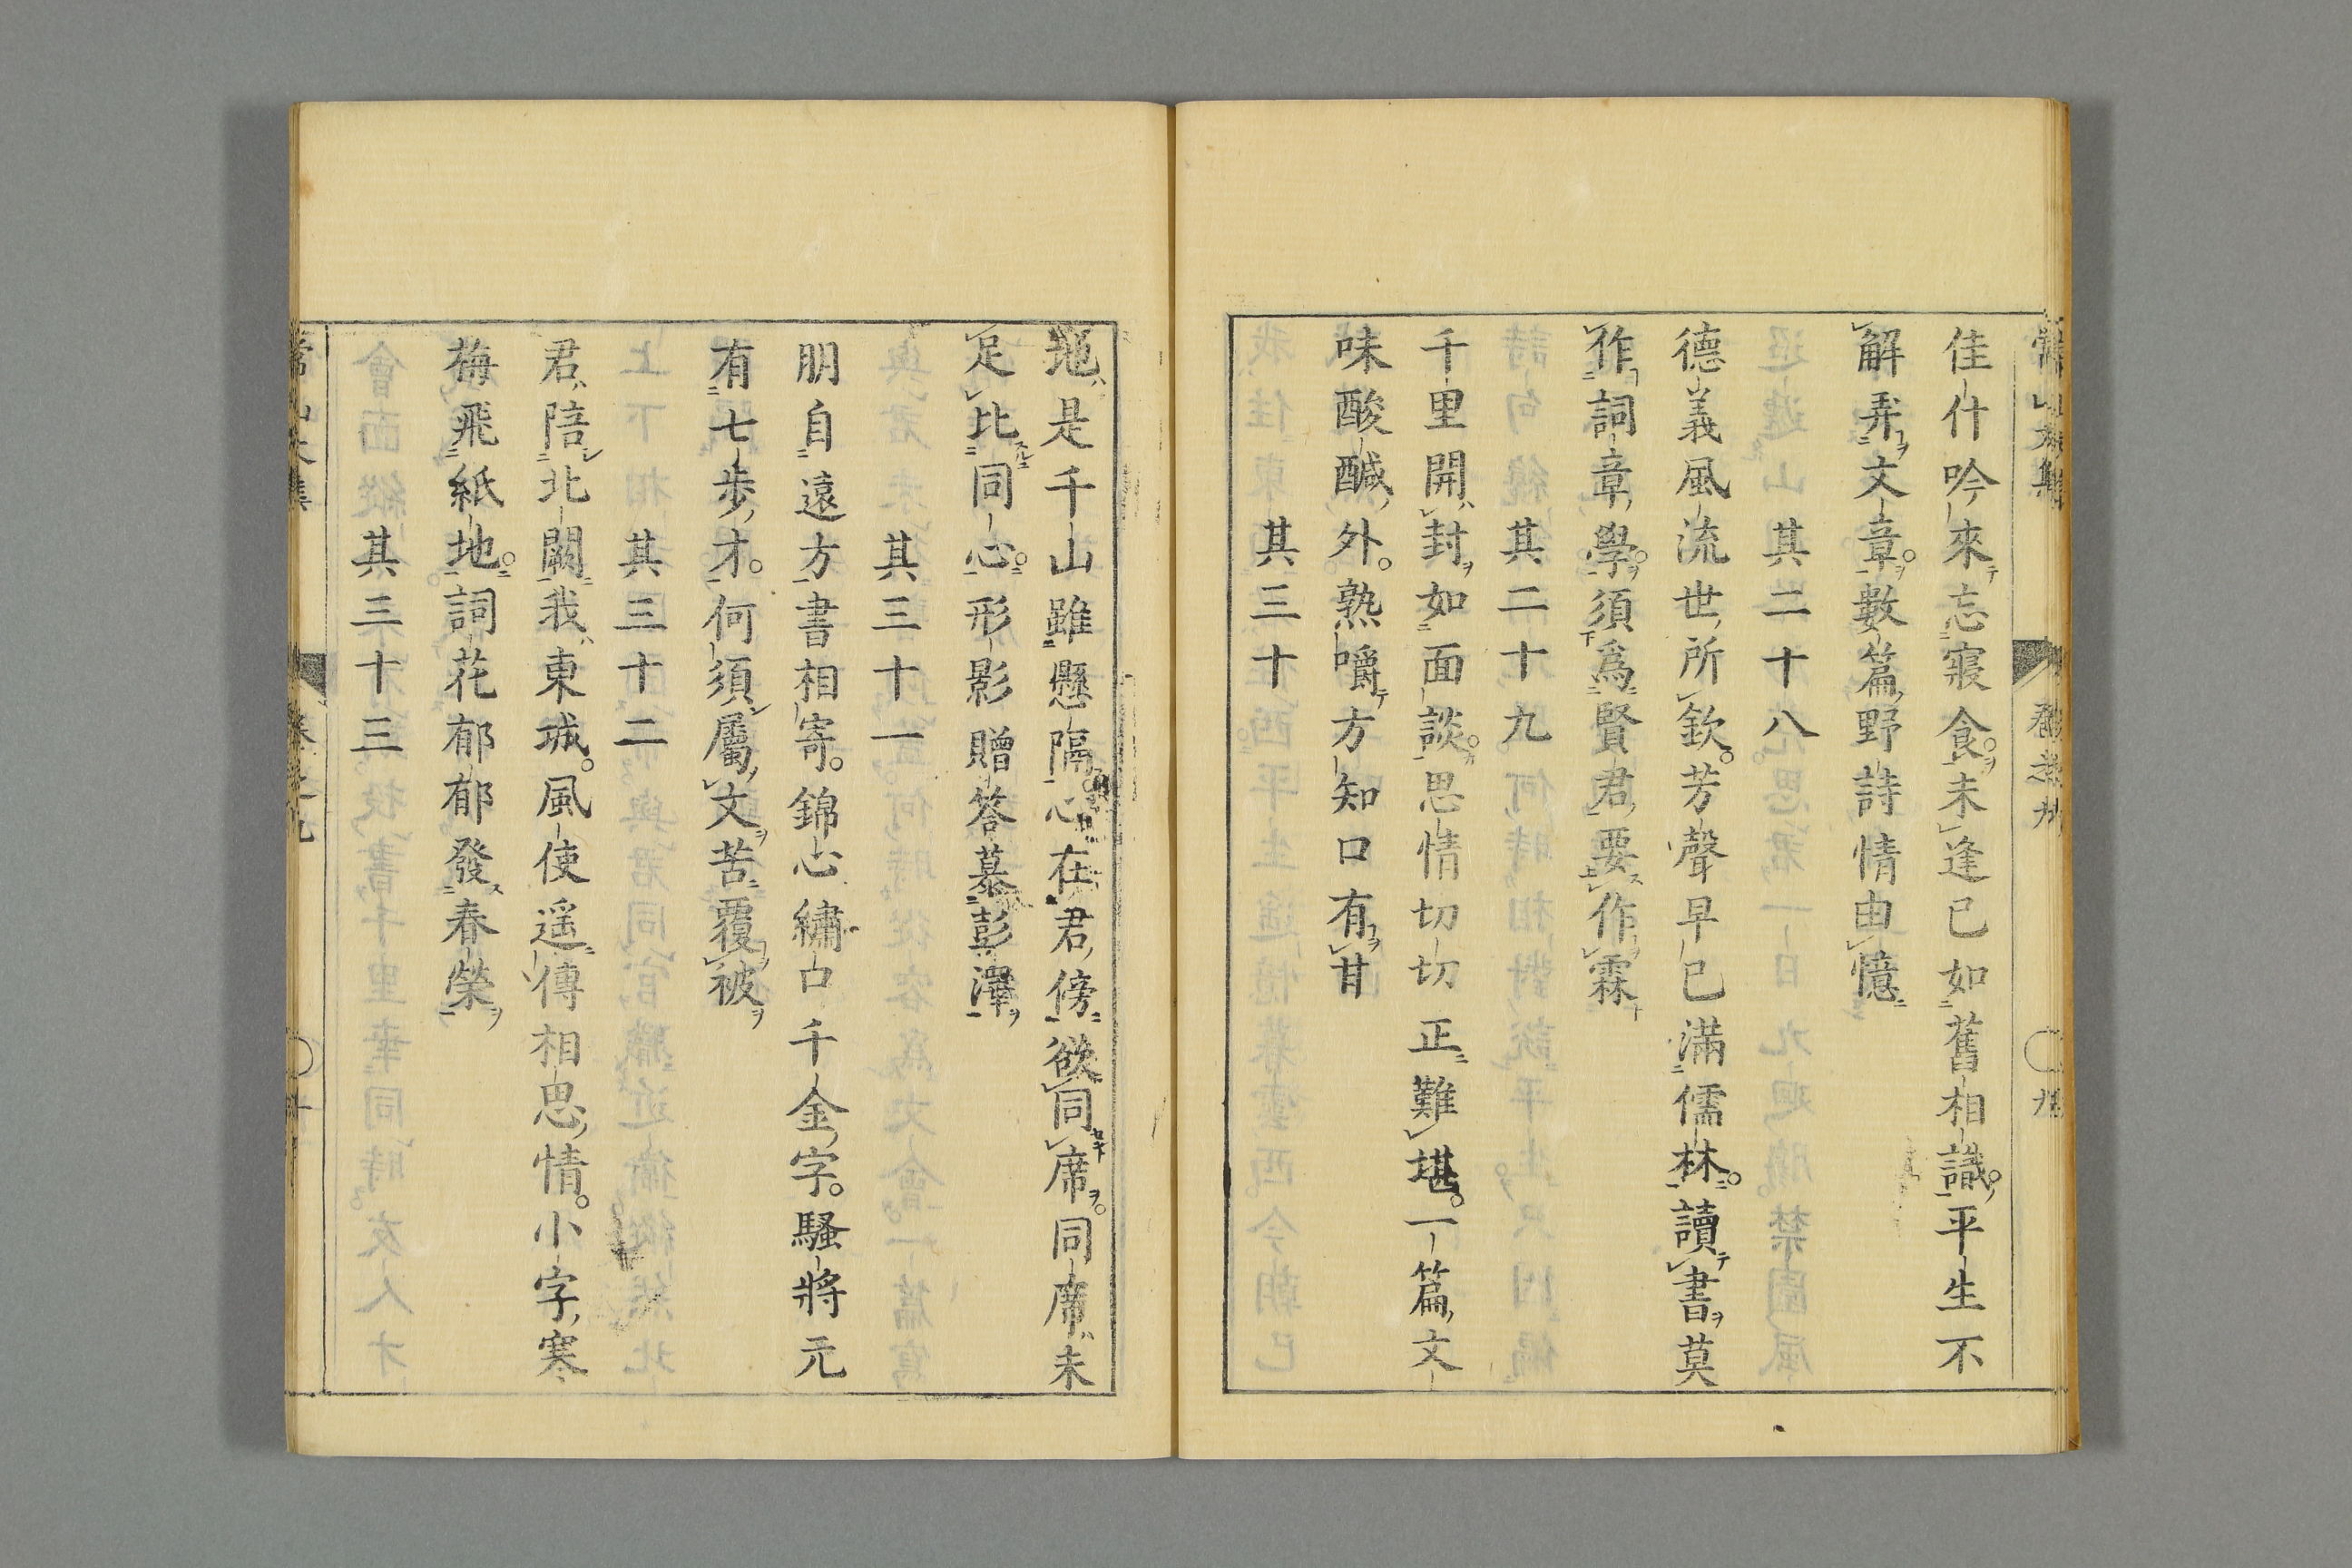 佳什吟來忘寢食未逢已如舊相識平生不
解弄文章數篇野詩情由憶
其二十八
德義風流世所欽芳聲早已滿儒林讀書莫
作詞章學須爲賢君要作霖
其二十九
千里開封如面談思情切切正難堪一篇文
味酸醎外熟嚼方知口有甘
其三十
地是千山雖懸隔心在君傍欲同席同席未
足比同心形影贈答慕彭澤
其三十一
朋自遠方書相寄錦心繡口千金字騷將元
有七步才何須屬文苦覆被
其三十二
君陪北闕我東城風使遥傳相思情小字寒
梅飛紙地詞花郁郁發春榮
其三十三